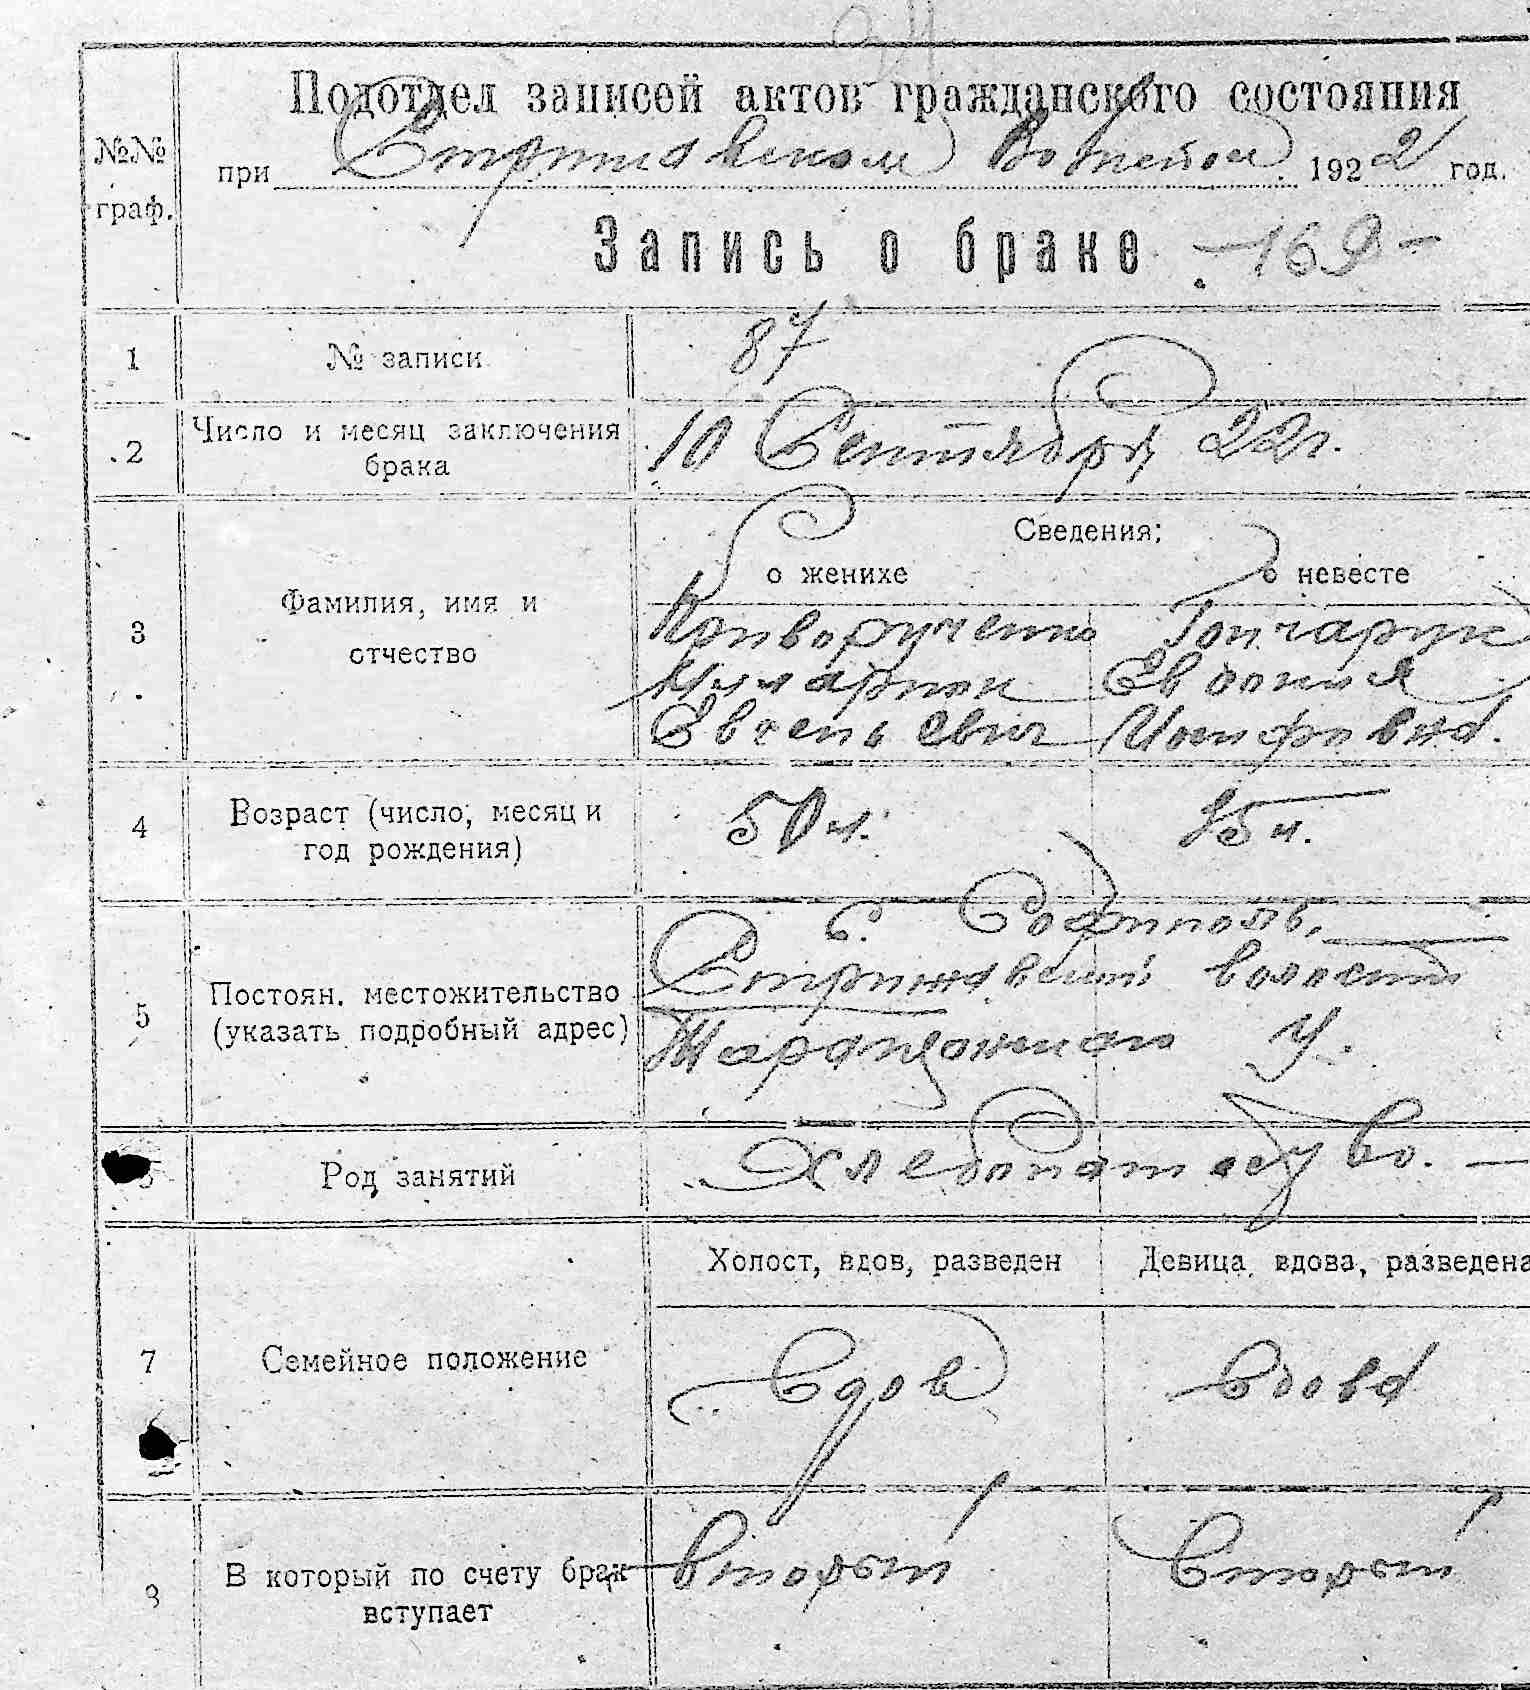 Подотдел записей актов гражданского состояния
№№ граф.
при Стрижавском 1922 год.
Запись о браке -169-
1 № записи 87
2 Число и месяц заключения брака 10 Сентября 22 г.
Сведения:
о женихе о невесте
3 Фамилия, имя и отчество
Криворученко Гончарук
Иларион Евдокия
Евсеньевич Иосифовна.
4 Возраст (число, месяц и год рождения) 50 л.
5 Постоян. местожительство (указать подробный адрес)
С.
Стрижавской волости
У.
Род занятий Хлебопашество.
Холост, вдов, разведен Девица вдова, разведена
7 Семейное положение Вдов Вдова
8 В который по счету брак вступает Вторый Вторый